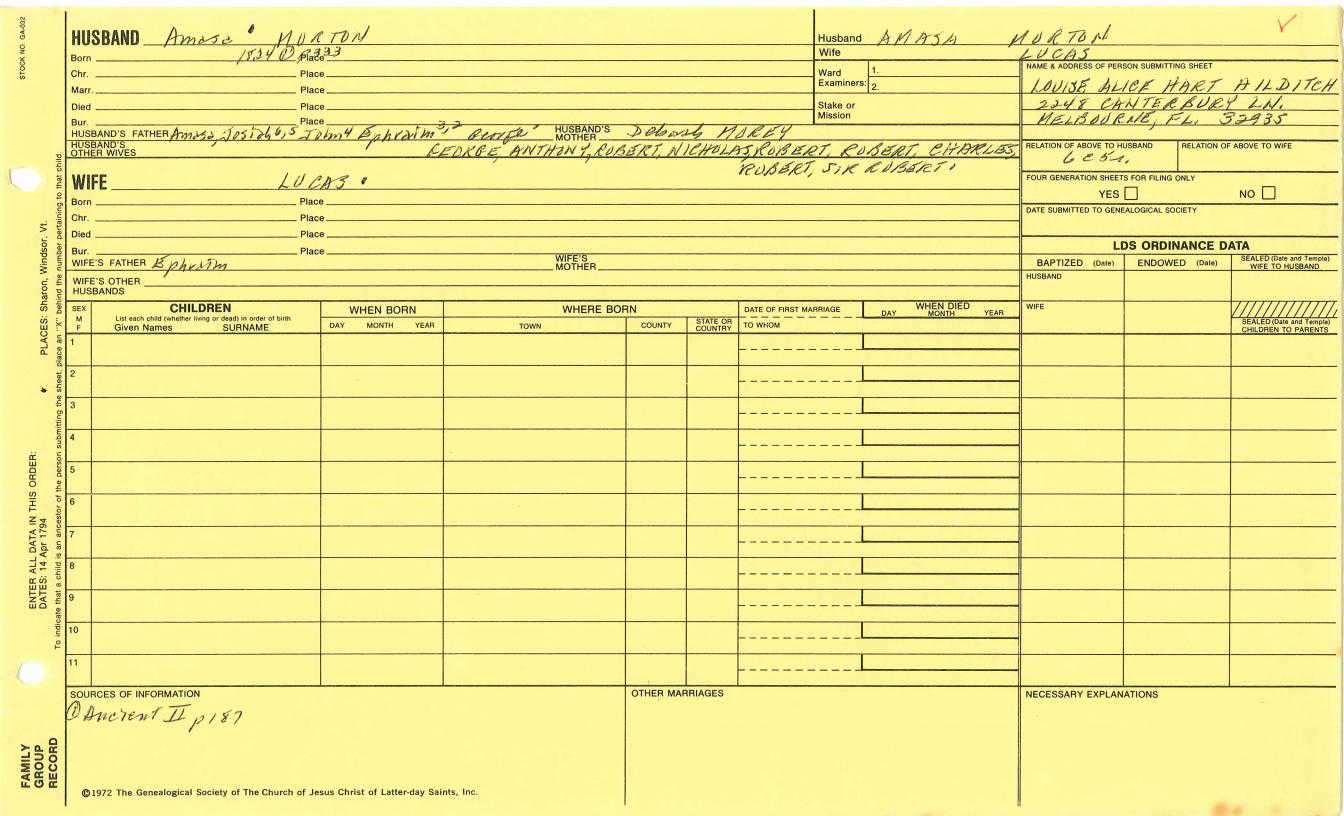 STOCK NO. GA-032
HUSBAND Amasa MORTON
Husband AMASA MORTON
Born 1834 ① p333 Place
Wife LUCAS
Chr. Place
Ward Examiners: 1.
2.
Marr. Place
Died Place
Stake or Mission
Bur. Place
NAME & ADDRESS OF PERSON SUBMITTING SHEET
LOUISE ALICE HART HILDITCH
2248 CANTERBURY LN.
MELBOURNE, FL. 32935
HUSBAND'S FATHER Amasa, Josiah 6,5 John 4 Ephraim 3,2 George 1 HUSBAND'S MOTHER Deborah MOREY
HUSBAND'S OTHER WIVES GEORGE, ANTHONY, ROBERT, NICHOLAS, ROBERT, ROBERT, CHARLES,
ROBERT, SIR ROBERT.
RELATION OF ABOVE TO HUSBAND
RELATION OF ABOVE TO WIFE
WIFE LUCAS
FOUR GENERATION SHEETS FOR FILING ONLY
YES NO
Born Place
Chr. Place
DATE SUBMITTED TO GENEALOGICAL SOCIETY
Died Place
Bur. Place
LDS ORDINANCE DATA
WIFE'S FATHER Ephraim WIFE'S MOTHER
BAPTIZED (Date) ENDOWED (Date) SEALED (Date and Temple) WIFE TO HUSBAND
WIFE'S OTHER HUSBANDS
HUSBAND
SEX M F
CHILDREN
List each child (whether living or dead) in order of birth
Given Names SURNAME
WHEN BORN
DAY MONTH YEAR
WHERE BORN
TOWN COUNTY STATE OR COUNTRY
DATE OF FIRST MARRIAGE
TO WHOM
WHEN DIED
DAY MONTH YEAR
WIFE
SEALED (Date and Temple) CHILDREN TO PARENTS
1
2
3
4
5
6
7
8
9
10
11
SOURCES OF INFORMATION
① Ancient II p187
OTHER MARRIAGES
NECESSARY EXPLANATIONS
©1972 The Genealogical Society of The Church of Jesus Christ of Latter-day Saints, Inc.
FAMILY GROUP RECORD
ENTER ALL DATA IN THIS ORDER:
DATES: 14 Apr 1794 PLACES: Sharon, Windsor, Vt.
To indicate that a child is an ancestor of the person submitting the sheet, place an "X" behind the number pertaining to that child.